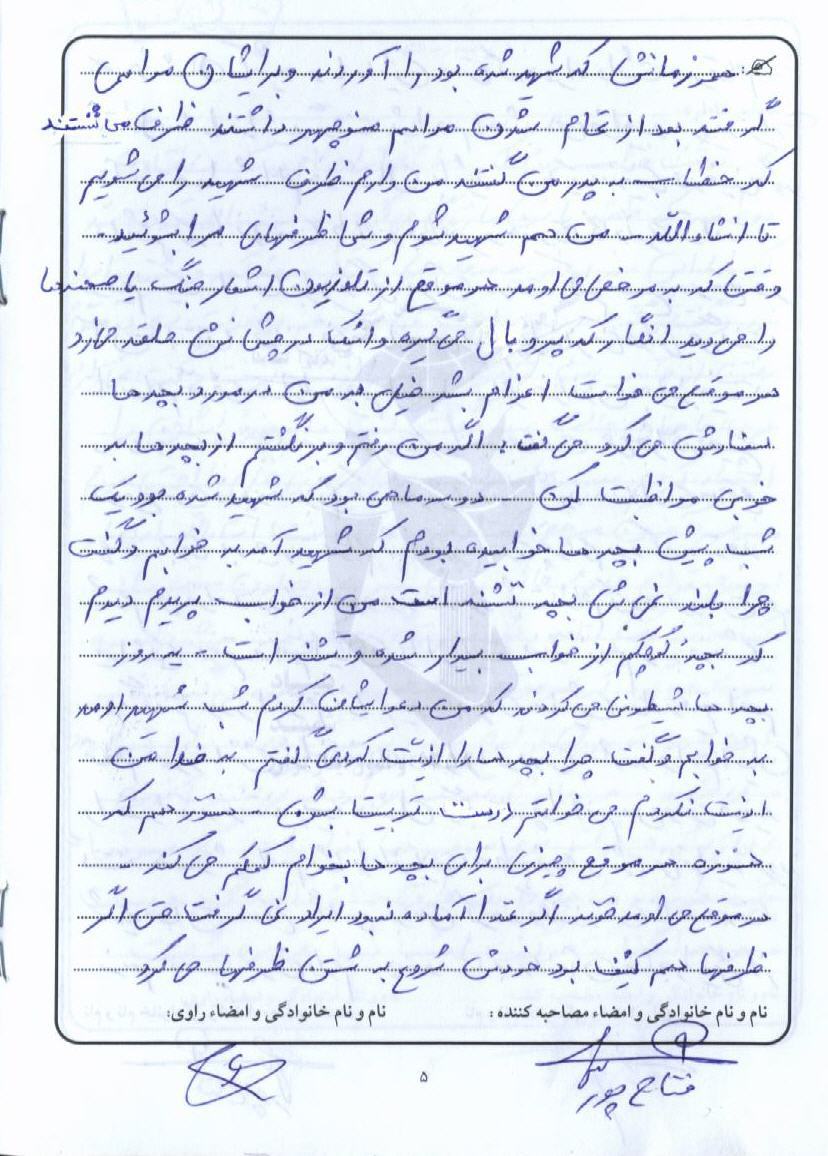 همرزمانش که شهید شده بود را آوردند و برایشان مراسم
گرفتند بعد از تمام شدن مراسم منوچهر داشتند ظرف می شستند
که خطاب به پدر می گفتند من دارم ظرف شهید را می شویم
تا انشاءالله من هم شهید شوم و شما ظرفهای مرا بشوئید.
وقتی که به مرخصی می اومد هر موقع از تلوزیون اشعار جنگ یا صحنه ها
را می دید انگار که پر و بال می گیره و اشک در چشمانش حلقه می زد
هر موقع می خواست اعزام بشه خیلی به من در مورد بچه ها
سفارش می کرد می گفت: اگه من رفتم و برنگشتم از بچه ها به
خوبی مواظبت کن دو سه ماهی بود که شهید شده بود یک
شب پیش بچه ها خوابیده بودم که شهید آمد به خوابم و گفت
چرا بلند نمی شی بچه تشنه است من از خواب پریدم دیدم
که بچه کوچکم از خواب بیدار شده و تشنه است. یه روز
بچه ها شیطونی می کردند که من دعوایشان کردم شب شهید اومد
به خوابم و گفت چرا بچه ها را اذیت کردی گفتم به خدا من
اذیت نکردم می خواستم درست تربیت بشن. هم که
هنوزه هر موقع چیزی برای بچه ها بخوام کمکم می کند.
هر موقع می اومد خونه اگر غذا آماده نبود ایراد نمی گرفت حتی اگر
ظرفها هم کثیف بود خودش شروع به شستن ظرفها می کرد
نام و نام خانوادگی و امضاء مصاحبه کننده : نام و نام خانوادگی و امضاء راوی:
فتاح پور
۵